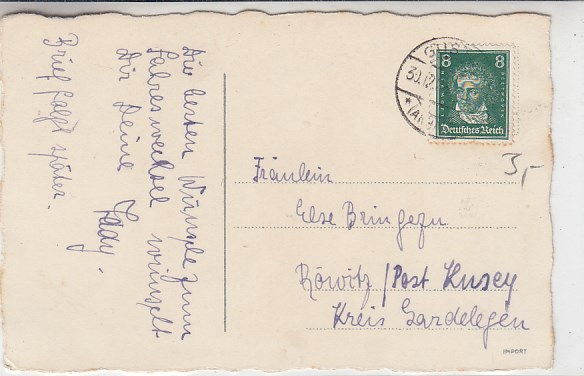 Die besten Wünsche zum
Jahreswechsel wünscht
Dir Deine
Brief folgt später.
8 8
Deutsches Reich
30.12
3,-
Fräulein
Else Bringezu
Röwitz / Post Kusey
Kreis Gardelegen
IMPORT